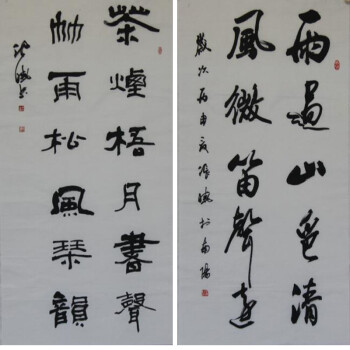 雨過山色清
風微笛聲遠
歲次丙申 於南陽
茶煙梧月書聲
竹雨松風琴韻